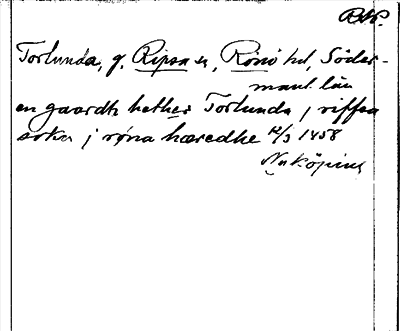 RAP.
Torlunda, g. Ripsa sn, Rönö hd, Söder-
manl. län
en gaardh hether Torlunda j riffsa
sokn j røna hæredhe 12/3 1458
Nyköping